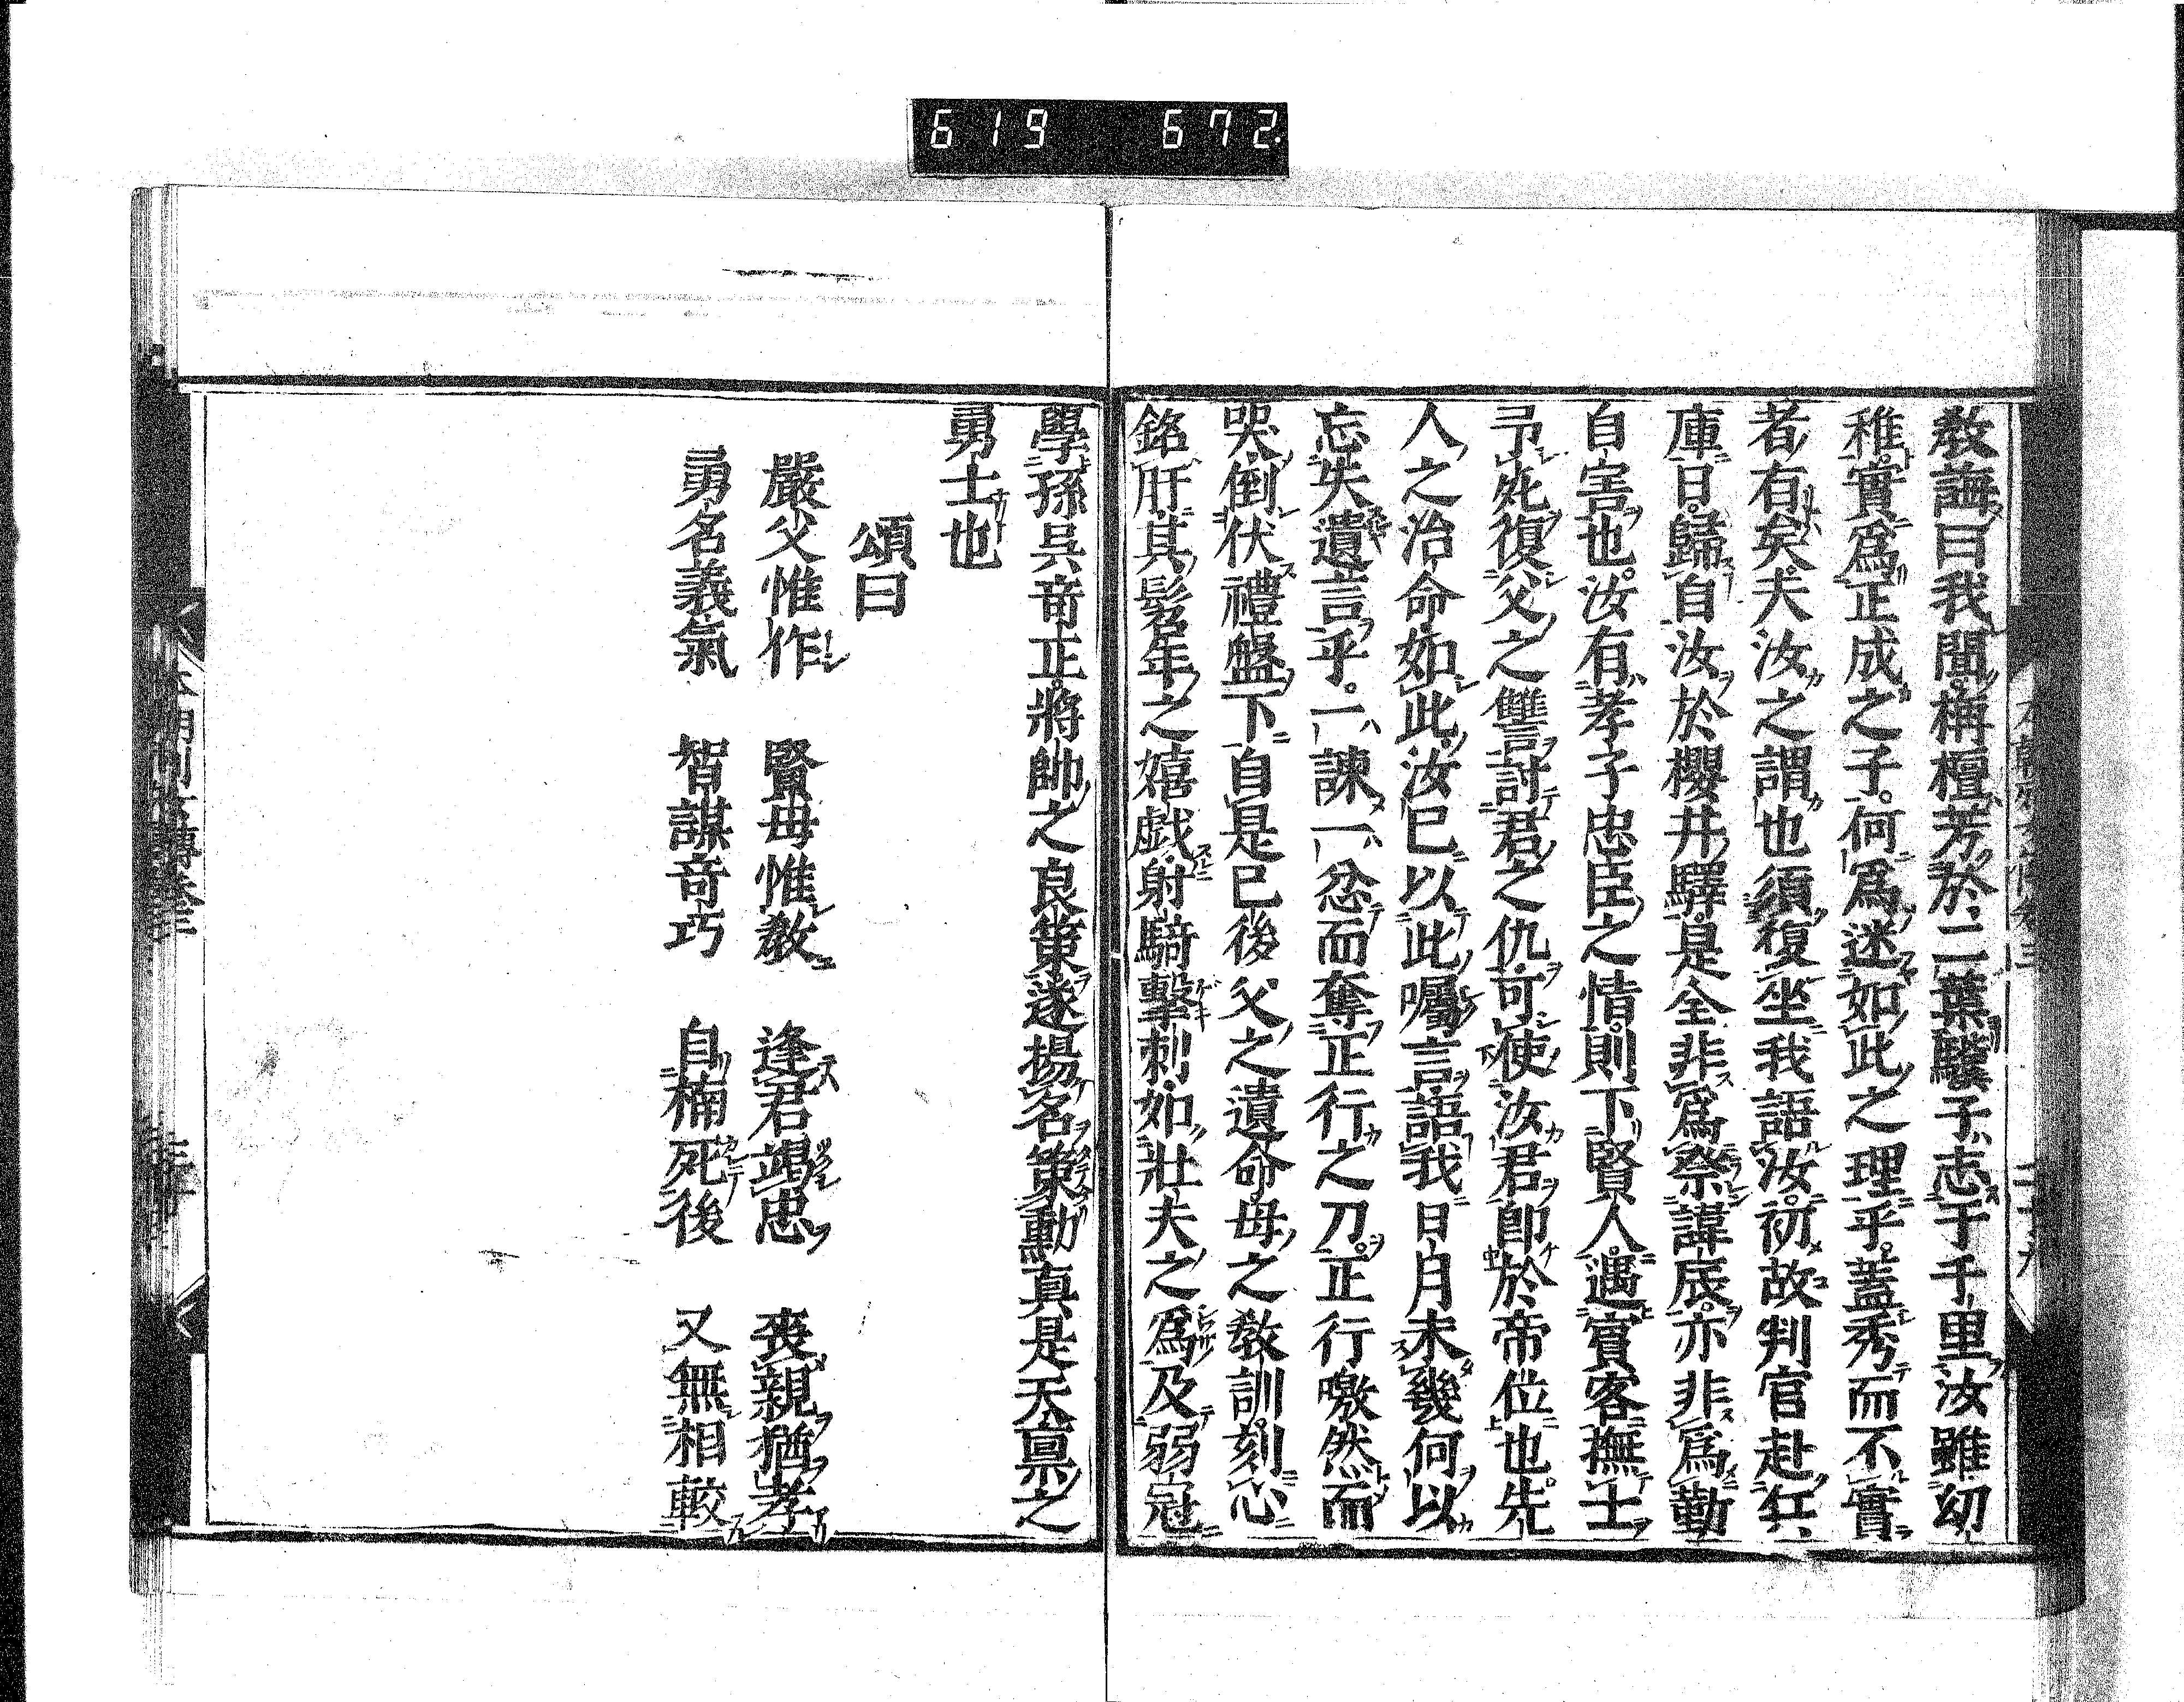 619 672.
教誨曰我聞栴檀芳於二葉驥子志于千里汝雖幼
稚實爲正成之子何爲迷如此之理乎蓋秀而不實
者有矣夫汝之謂也須復坐我語汝初故判官赴兵
庫日歸自汝於櫻井驛是全非爲祭諱辰亦非爲勤
自害也汝有孝子忠臣之情則下賢人遇賓客撫士
弔死復父之讐討君之仇可使汝君卽於帝位也先
人之治命如此汝已以此囑言語我日月未幾何以
忘失遺言乎一諫一忿而奪正行之刀正行噭然而
哭倒伏禮盤下自是已後父之遺命母之教訓刻心
銘肝其髫年之嬉戯射騎擊刺如壯夫之爲及弱冠
學孫吳竒正將帥之良策遂揚名策勳真是天禀之
勇士也
頌曰
嚴父惟作 賢母惟教 逢君竭忠 喪親猶孝
勇名義氣 智謀竒巧 自楠死後 又無相較